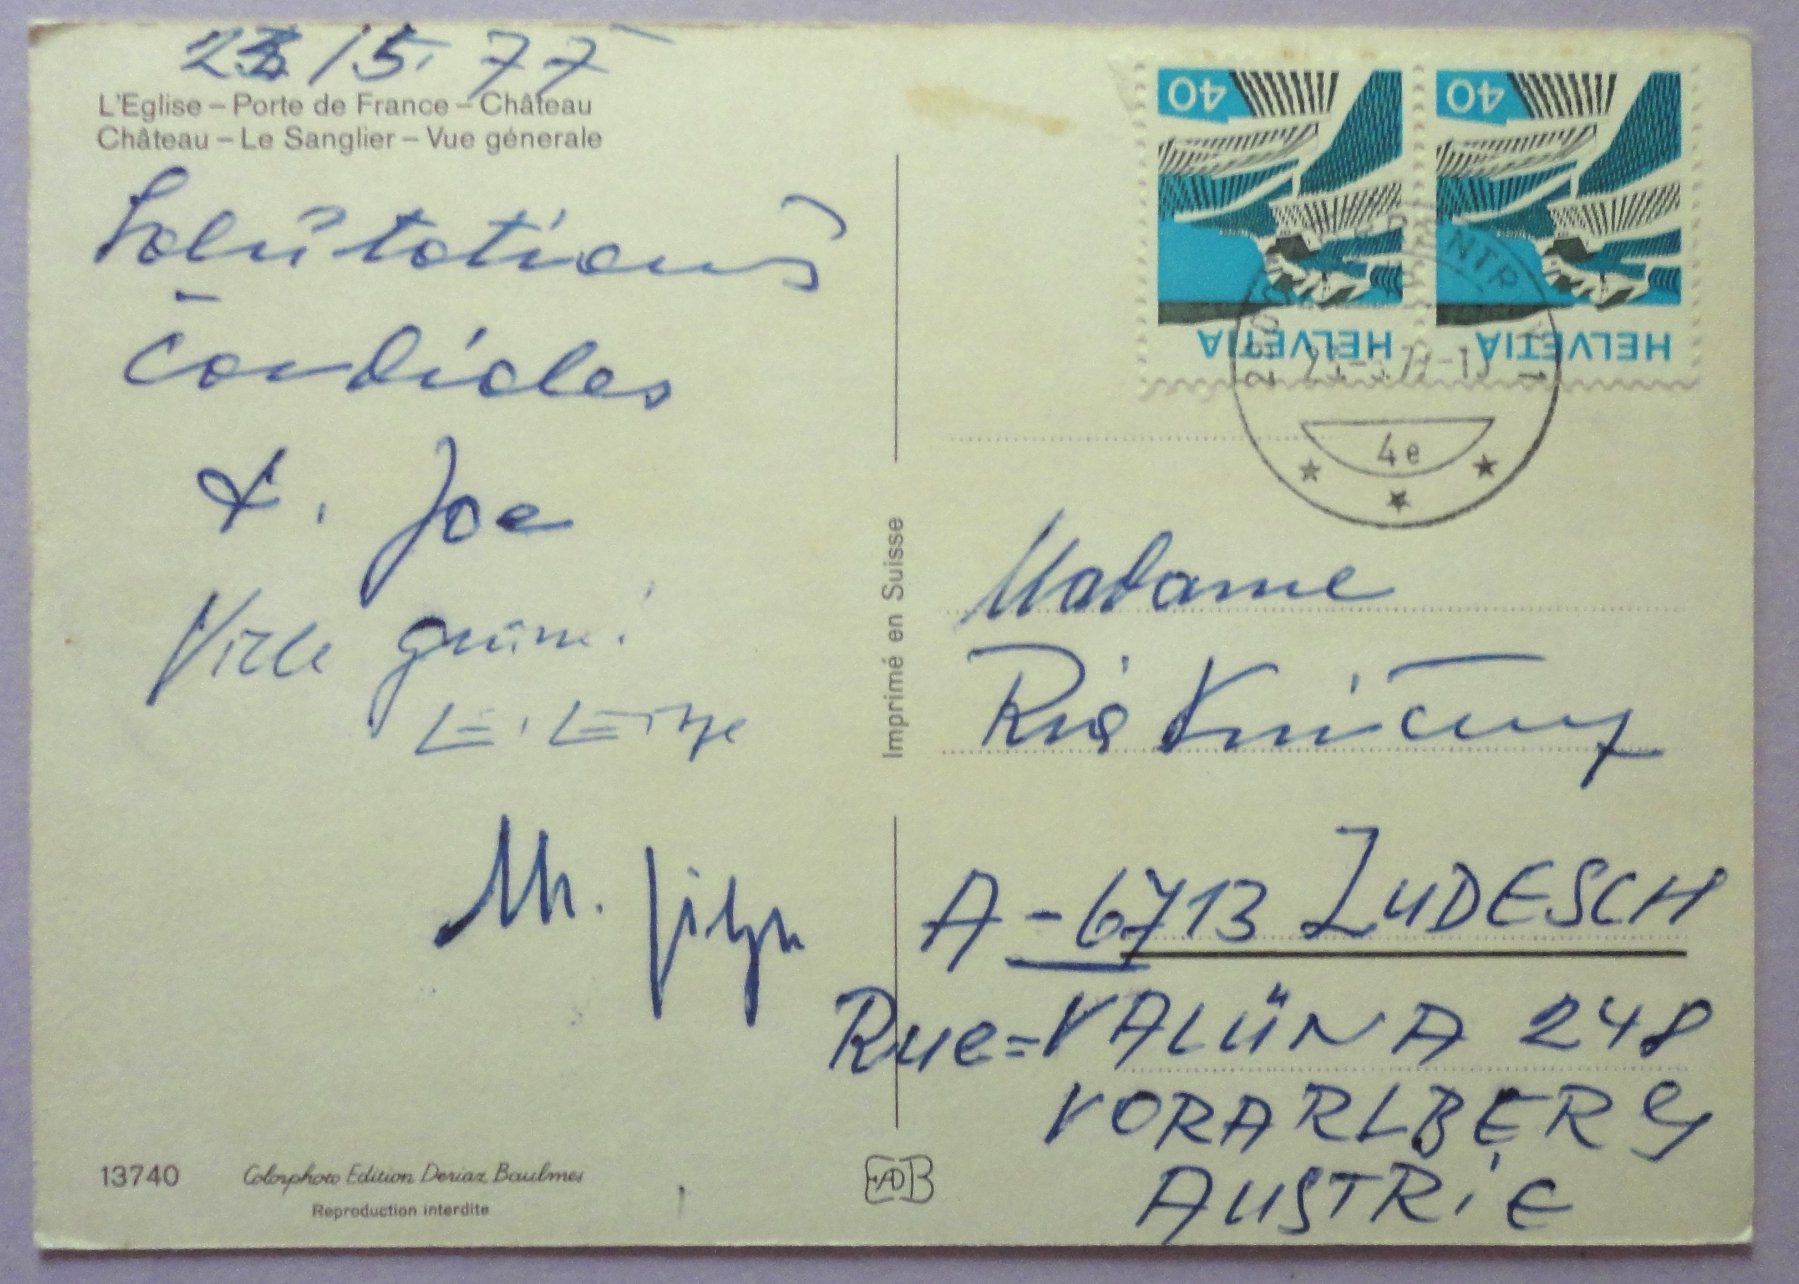 /5. 77
L'Eglise – Porte de France – Château
Château – Le Sanglier – Vue génerale
Salutations
cordiales
Joe
Imprimé en Suisse
13740
Colorphoto Edition Deriaz Baulmes
Reproduction interdite
40
40
HELVETIA
HELVETIA
4e
Madame
Ria
A-6713 LUDESCH
Rue=VALÜNA 248
VORARLBERG
AUSTRiE